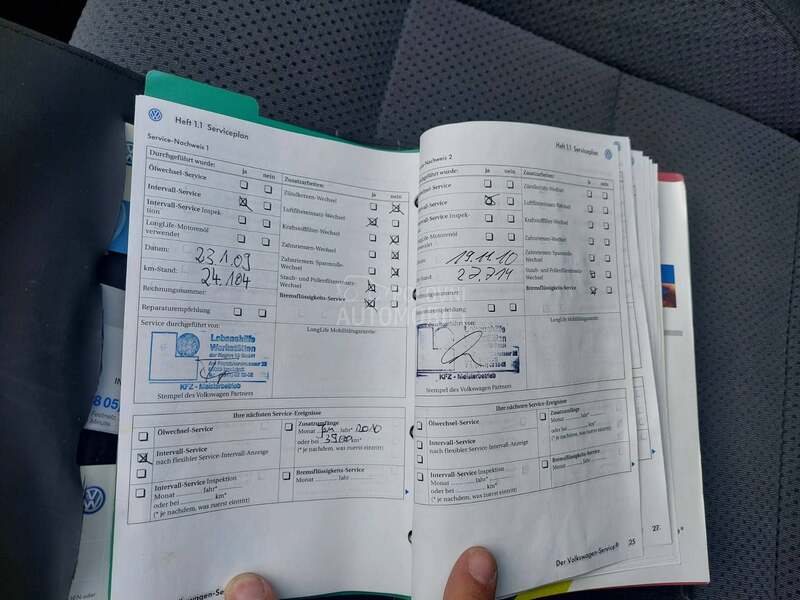 Heft 1.1 Serviceplan
Service-Nachweis 1
Durchgeführt wurde: ja nein
Ölwechsel-Service
Intervall-Service
Intervall-Service Inspek-
tion
LongLife-Motorenöl
verwendet
Datum: 23.1.09
km-Stand: 24.184
Rechnungsnummer:
Reparaturempfehlung
Service durchgeführt von:
Lebenshilfe
Werkstätten
KFZ - Meisterbetrieb
Stempel des Volkswagen Partners
Zusatzarbeiten: ja nein
Zündkerzen-Wechsel
Luftfiltereinsatz-Wechsel
Kraftstofffilter-Wechsel
Zahnriemen-Wechsel
Zahnriemen-Spannrolle-
Wechsel
Staub- und Pollenfiltereinsatz-
Wechsel
Bremsflüssigkeits-Service
LongLife Mobilitätsgarantie:
Ihre nächsten Service-Ereignisse
Ölwechsel-Service
Intervall-Service
nach flexibler Service-Intervall-Anzeige
Intervall-Service Inspektion
Monat ........... Jahr*
oder bei ........... km*
(* je nachdem, was zuerst eintritt)
Zusatzumfänge
Monat Jan Jahr* 2010
oder bei
(* je nachdem, was zuerst eintritt)
Bremsflüssigkeits-Service
Monat ........... Jahr
Heft 1.1 Serviceplan
Nachweis 2
geführt wurde: ja nein
-Service
-Service
-Service Inspek-
Motorenöl
19.11.10
27.714
empfehlung
geführt von:
Lebenshilfe
KFZ - Meisterbetrieb
Stempel des Volkswagen Partners
Zusatzarbeiten:
Zündkerzen-Wechsel
Luftfiltereinsatz-Wechsel
Kraftstofffilter-Wechsel
Zahnriemen-Wechsel
Zahnriemen-Spannrolle-
Wechsel
Staub- und Pollenfiltereinsatz-
Wechsel
Bremsflüssigkeits-Service
LongLife Mobilitätsgarantie:
Ihre nächsten Service-Ereignisse
Ölwechsel-Service
Intervall-Service
nach flexibler Service-Intervall-Anzeige
Intervall-Service Inspektion
Monat ........... Jahr*
oder bei ........... km*
(* je nachdem, was zuerst eintritt)
Zusatzumfänge
Monat ........... Jahr*
oder bei ........... km*
(* je nachdem, was zuerst eintritt)
Bremsflüssigkeits-Service
Monat ........... Jahr
Der Volkswagen-Service® 25
27